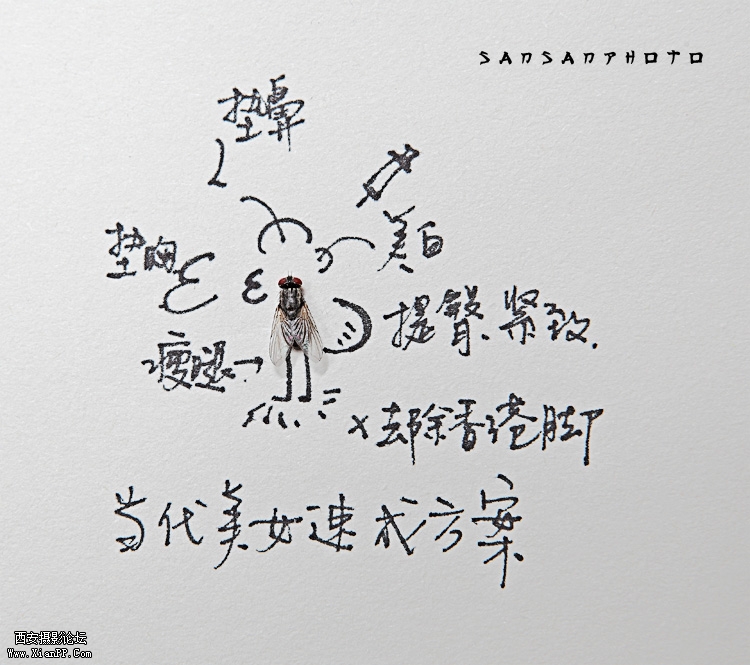 SANSANPHOTO
垫鼻
美白
垫胸
提臀、紧致.
瘦腿→
x去除香港脚
当代美女速成方案
西安摄影论坛
Www.XianPP.Com